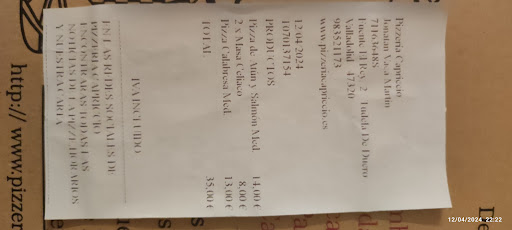 Pizzeria Capriccio
Jonatan Vaca Martin
Fuente El Rey, 2 Tudela De Duero
Valladolid 47320
983521173
www.pizzeriacapriccio.es
12/04/2024
1070137154
PRODUCTOS
Pizza de Atún y Salmon Med. 14.00 €
2 x Masa Celiaco 8.00 €
Pizza Calabresa Med. 13.00 €
TOTAL 35.00 €
IVA INCLUIDO
EN LAS REDES SOCIALES DE
PIZZERIA CAPRICCIO
ENCONTRARAS TODAS LAS
NOTICIAS DE LA PIZZE, HORARIOS
Y NUESTRA CARTA
http://www.pizzer
12/04/2024 22:22